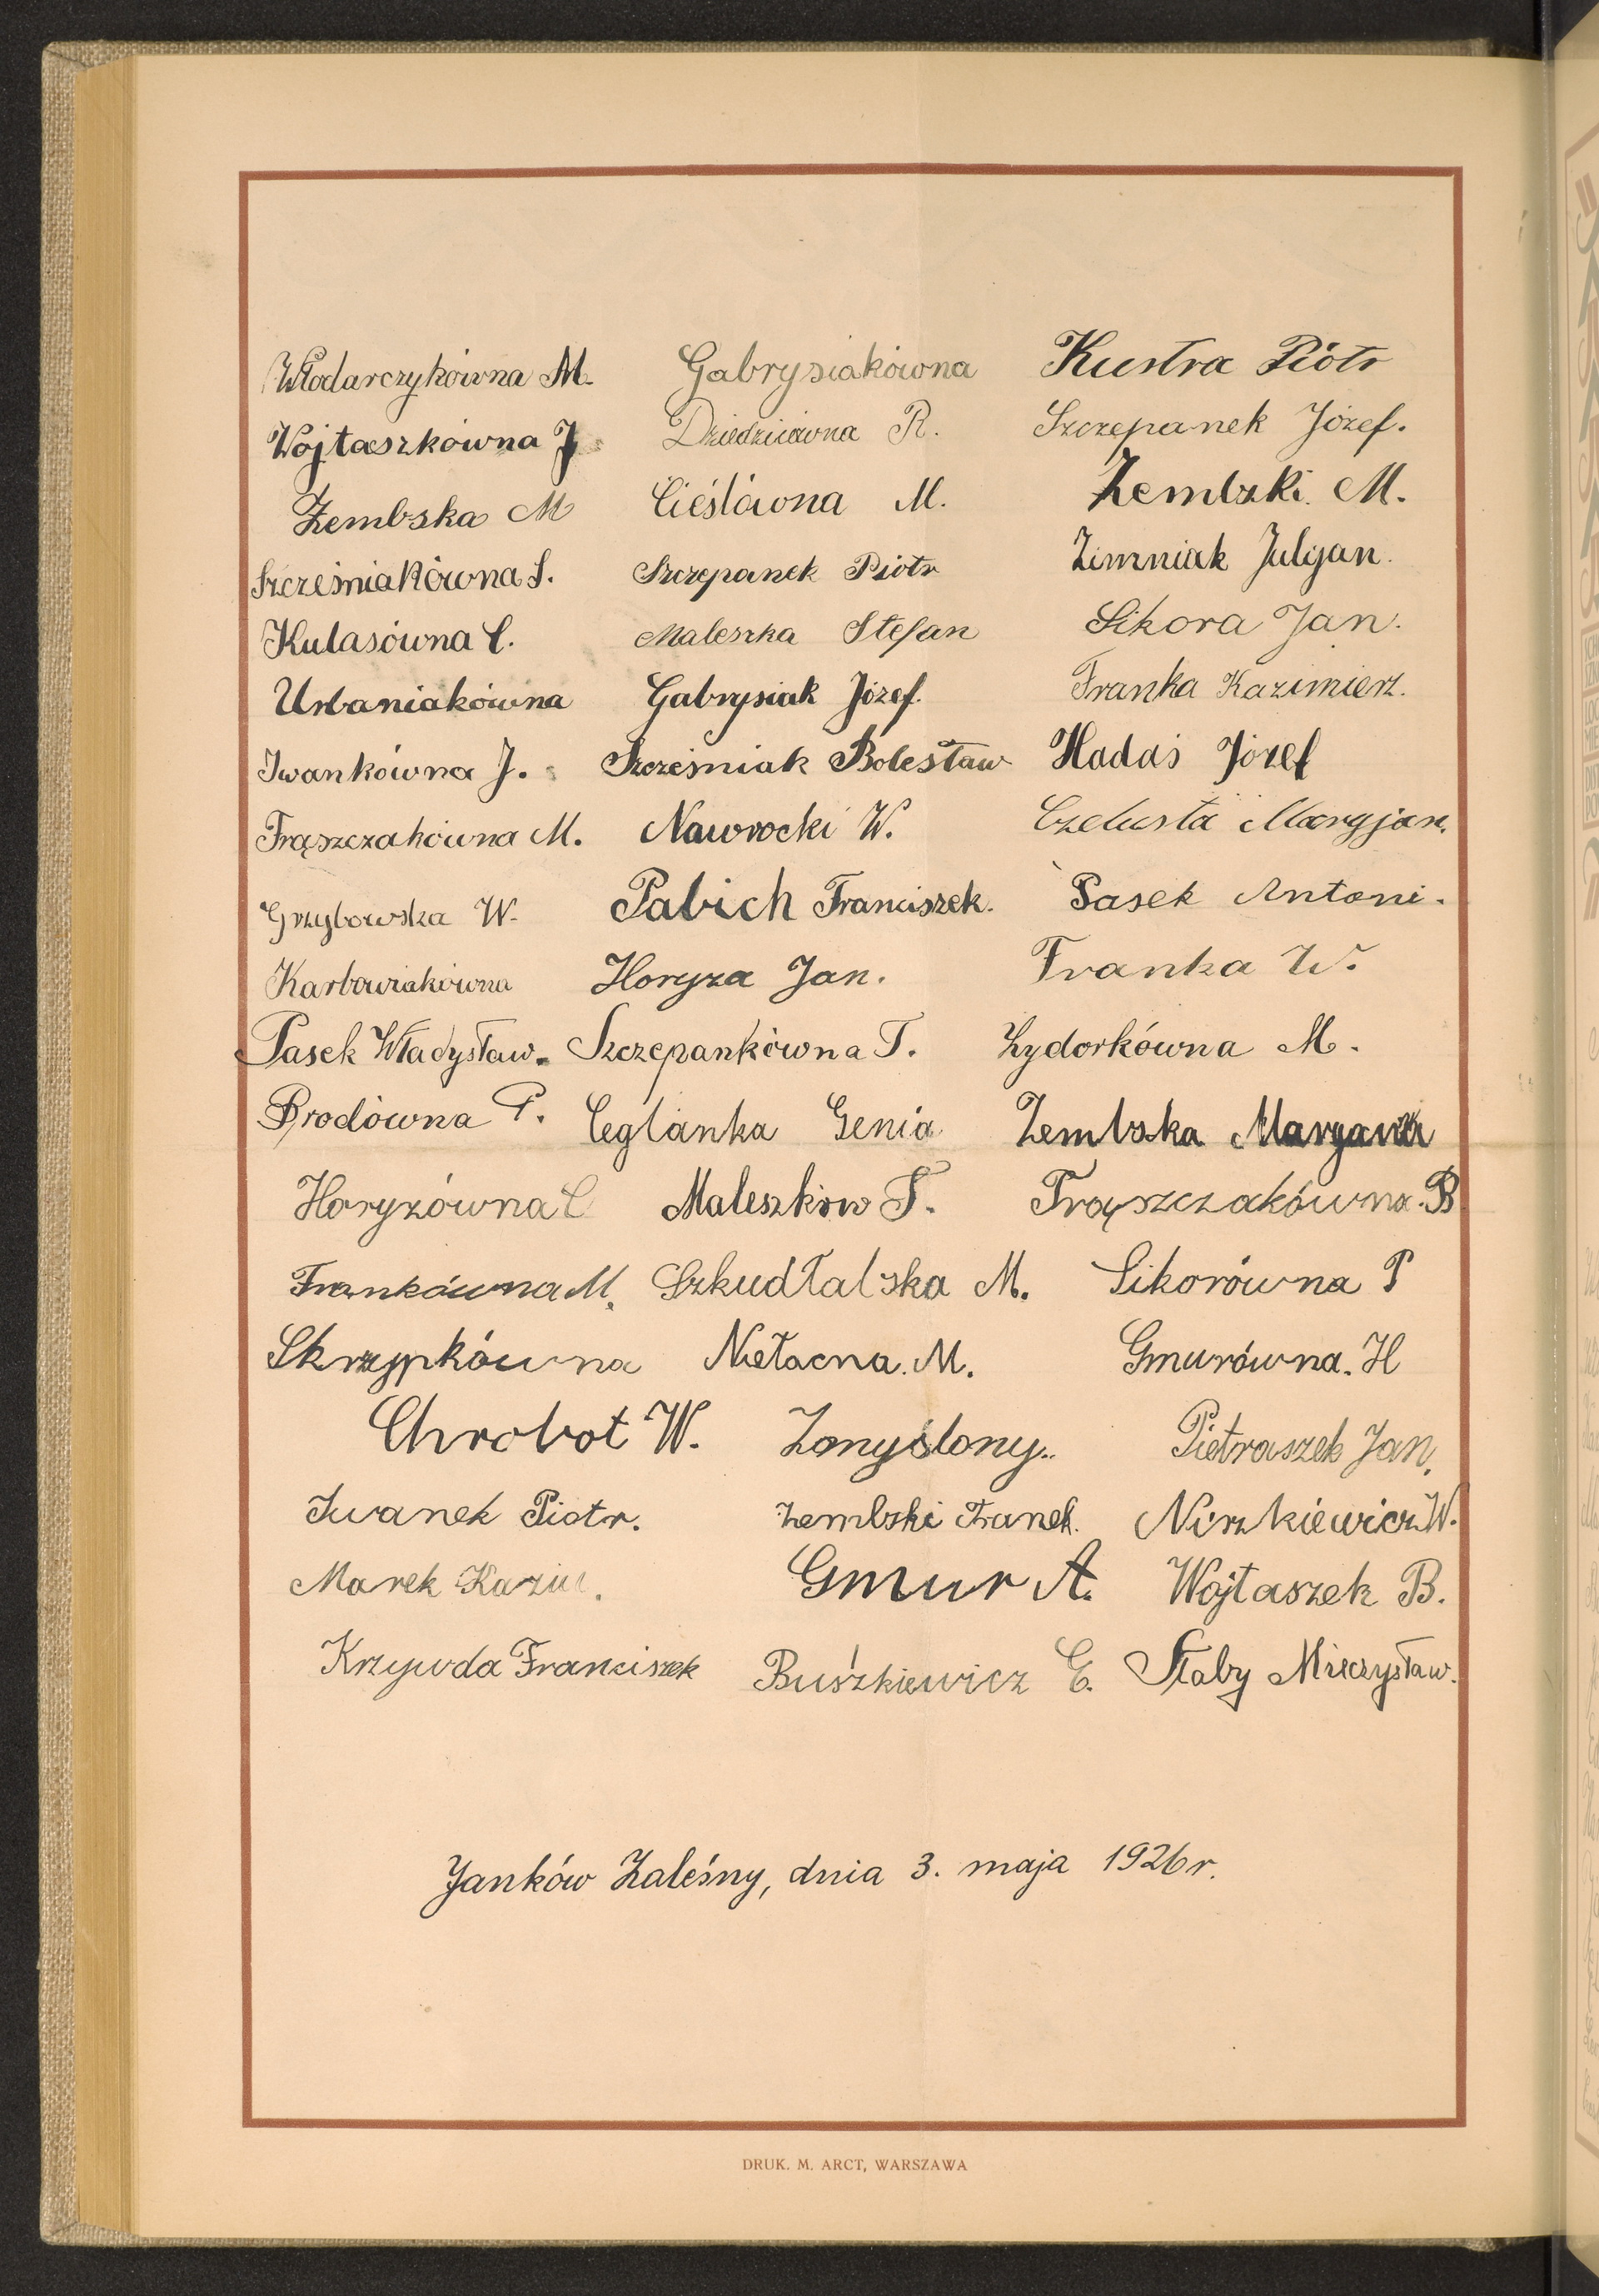 Włodarczykówna M. Gabrysiakówna Kustra Piótr
Wojtaszkówna J. Dziedziicówna R. Szczepanek Józef.
Zembska M Cieślówna M. Zembski M.
Szcześniakówna S. Szczepanek Piotr Zimniak Julyan.
Kulasówna C. Maleszka Stefan Sikora Jan.
Urbaniakówna Gabrysiak Józef. Franka Kazimierz.
Iwankówna J. Szcześniak Bolesław Hadaś Józef
Frąszczakówna M. Nawrocki W. Czelusta Maryjan.
Grzybowska W. Pabich Franciszek. Pasek Antoni.
Karbowiakówna Horyza Jan. Franka W.
Pasek Władysław. Szczepankówna T. Zydorkówna M.
Brodówna P. Ceglanka Genia Zembska Maryanna
Horyzówna C Maleszków T. Frąszczakówna. B
Frankówna M. Szkudłalska M. Sikorówna P
Skrzypkówna Niełacna. M. Gmurówna. H
Chrobot W. Zmyślony.. Pietraszek Jan.
Iwanek Piotr. Zembski Franek. Niszkiewicz W.
Marek Kazim. Gmur A. Wojtaszek B.
Krzywda Franciszek Buśzkiewicz E. Słaby Mieczysław.
Janków Zaleśny, dnia 3. maja 1926 r.
DRUK. M. ARCT, WARSZAWA